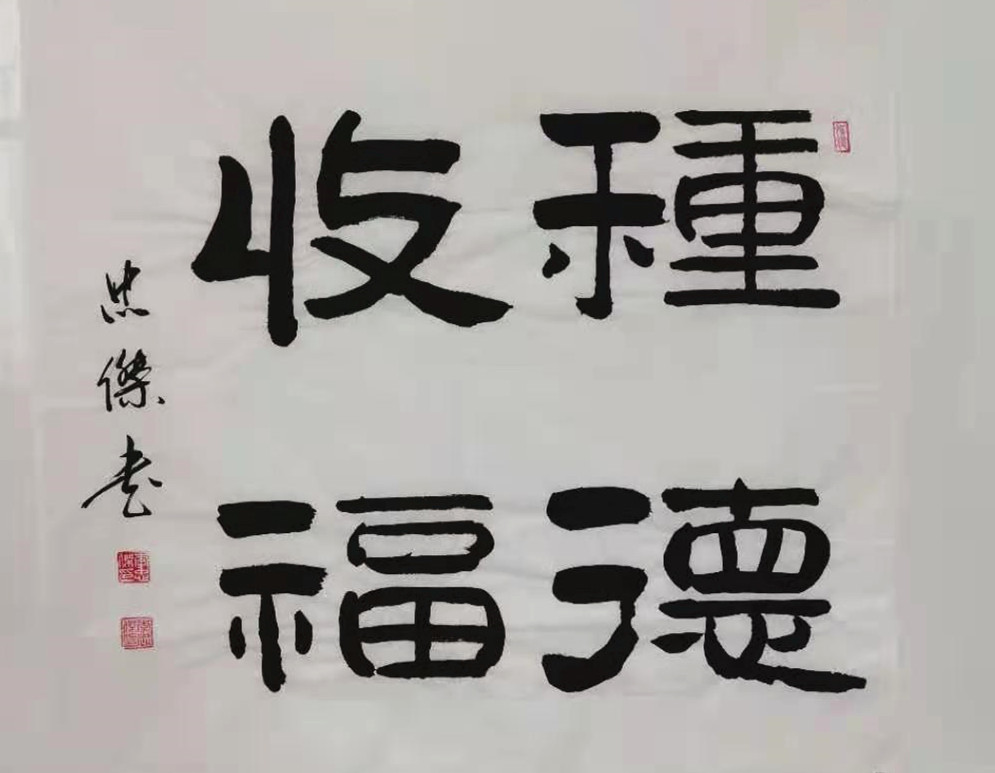 種德
收福
忠傑書